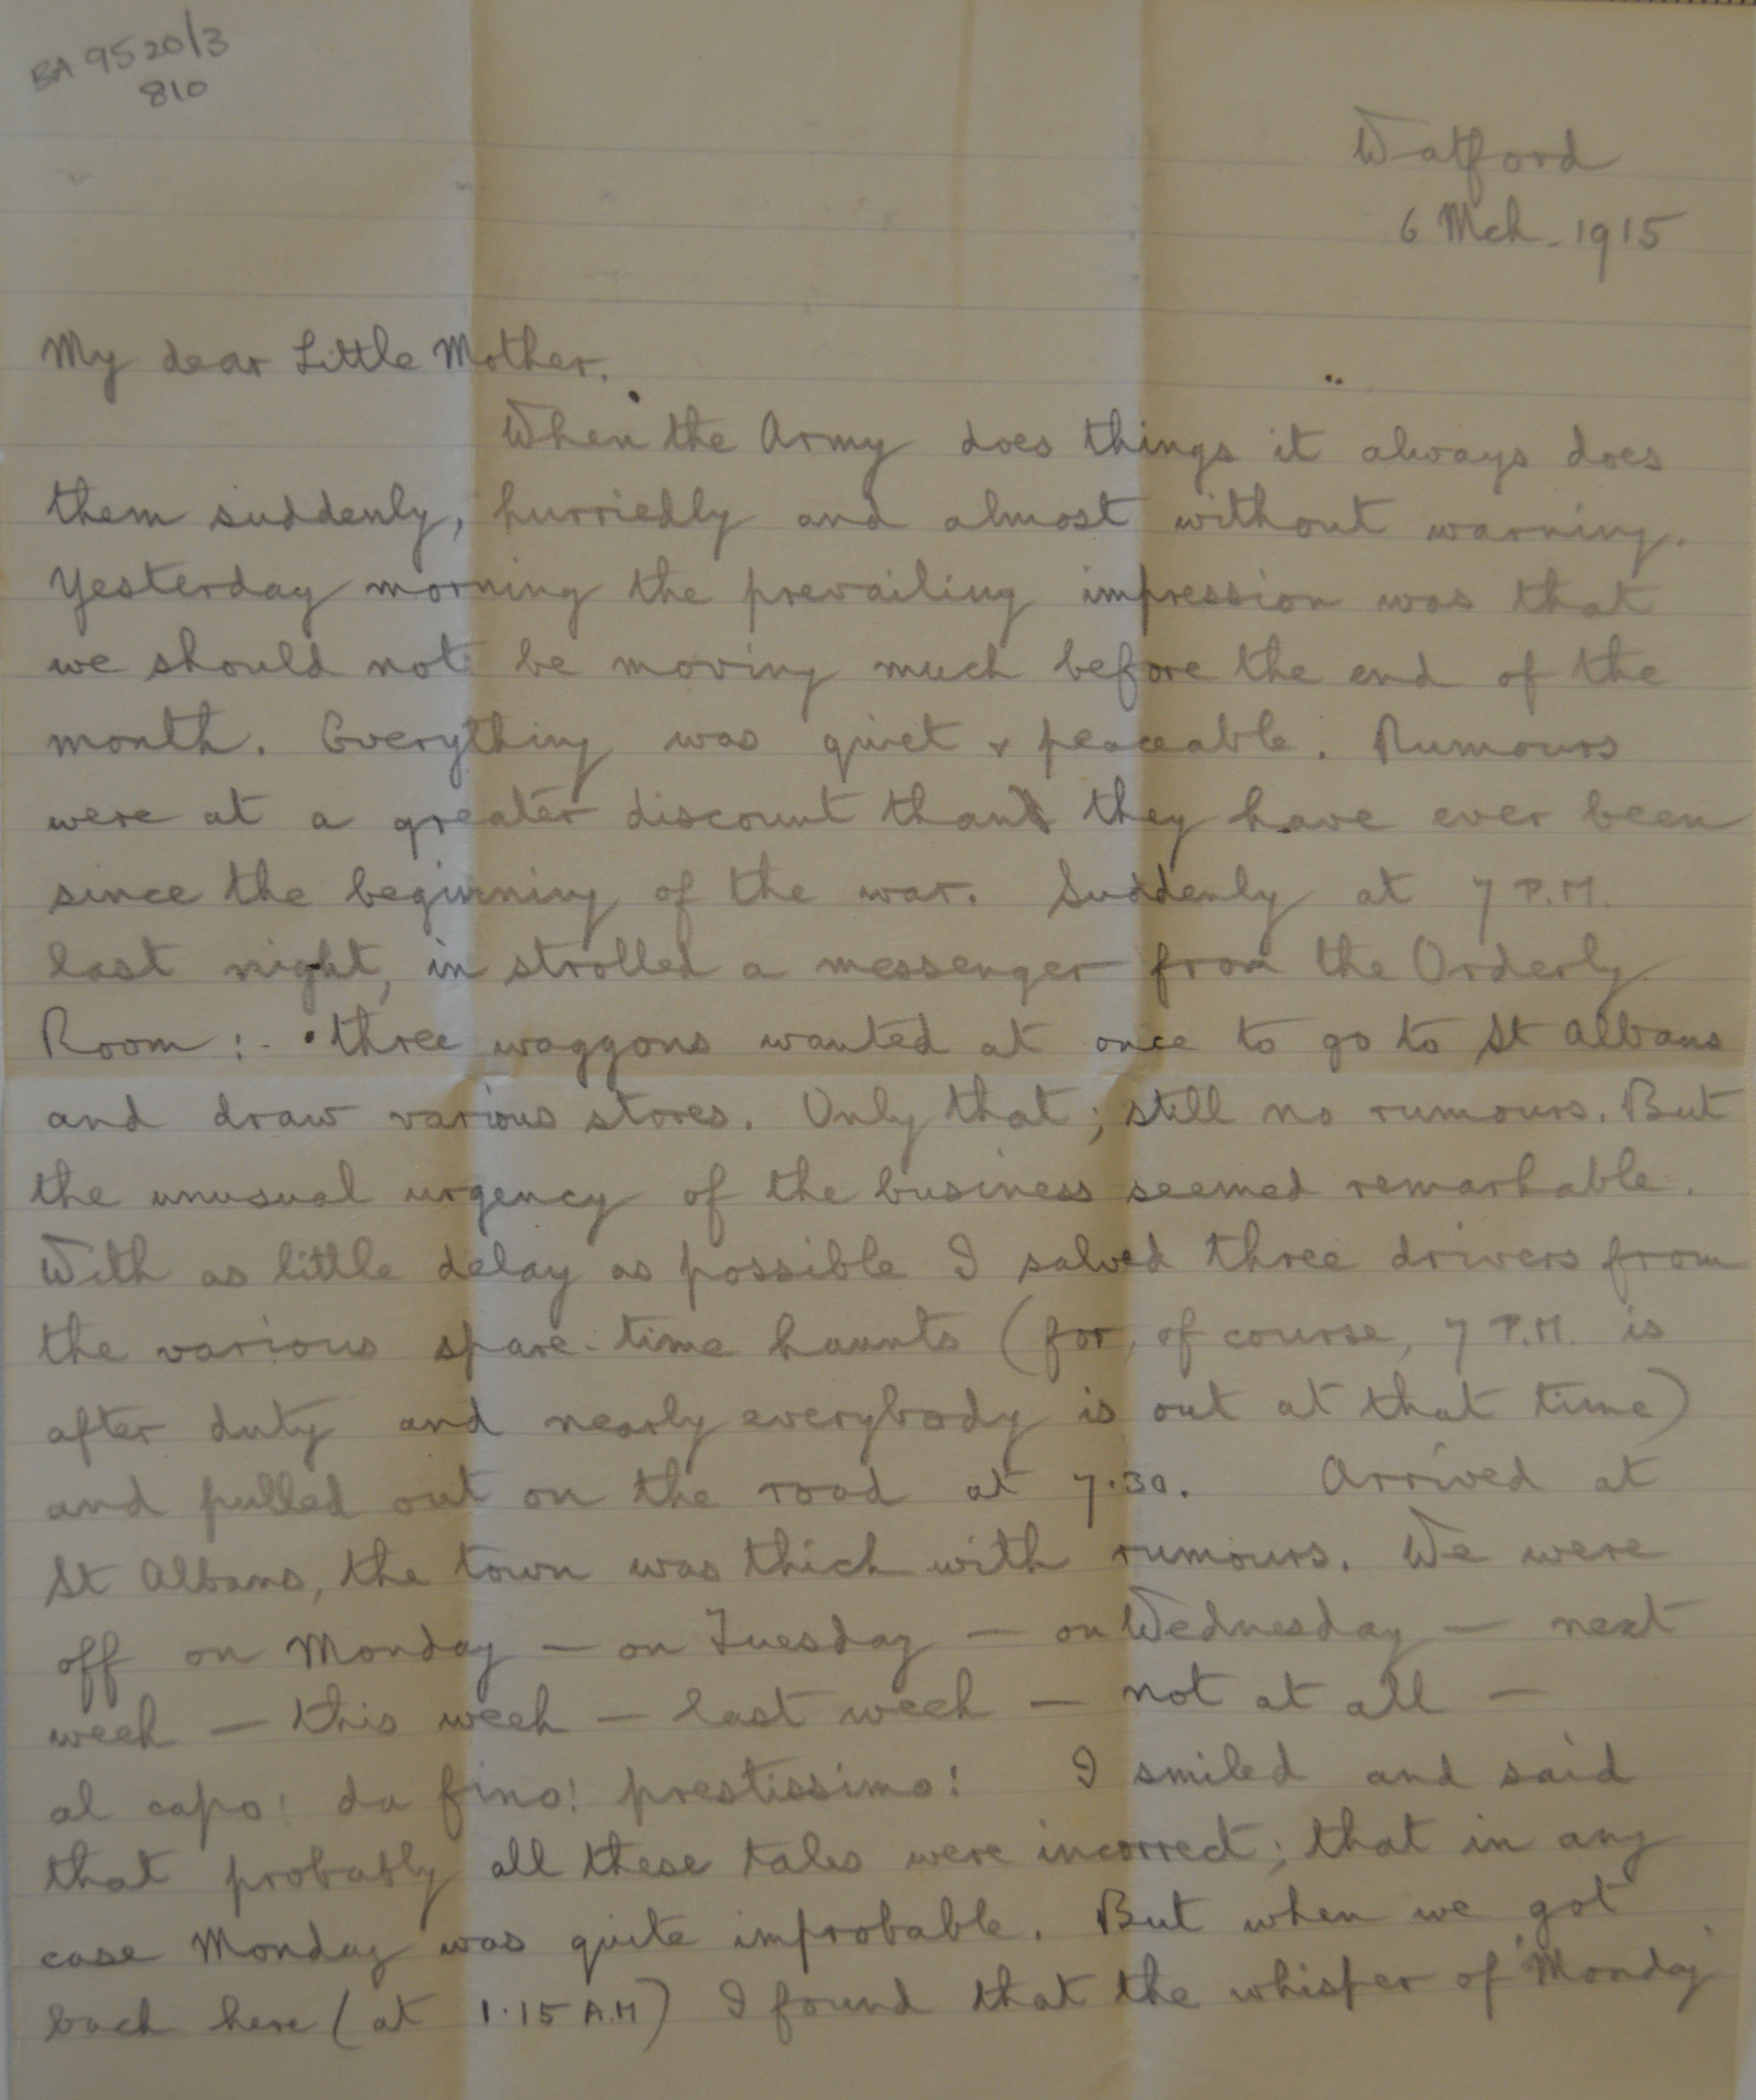 BA 9520/3
810
Watford
6 Mch. 1915
My dear Little Mother.
When the Army does things it always does
them suddenly, hurriedly and almost without warning.
Yesterday morning the prevailing impression was that
we should not be moving much before the end of the
month. Everything was quiet & peaceable. Rumours
were at a greater discount than they have ever been
since the beginning of the war. Suddenly at 7 P.M.
last night, in strolled a messenger from the Orderly
Room :- three waggons wanted at once to go to St Albans
and draw various stores. Only that; still no rumours. But
the unusual urgency of the business seemed remarkable.
With as little delay as possible I salved three drivers from
the various spare-time haunts (for, of course, 7 P.M. is
after duty and nearly everybody is out at that time)
and pulled out on the road at 7.30. Arrived at
St Albans, the town was thick with rumours. We were
off on Monday — on Tuesday — on Wednesday — next
week — this week — last week — not at all —
al capo! da fino! prestissimo! I smiled and said
that probably all these tales were incorrect; that in any
case Monday was quite improbable. But when we got
back here (at 1.15 A.M) I found that the whisper of 'Monday'